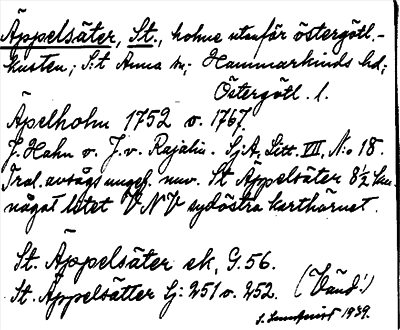 Äppelsäter, St., holme utanför östergötl.-
kusten; S:t Anna sn; Hammarkinds hd;
Östergötl. l.
Äpelholm 1752 o. 1767.
J. Hahn o. J. v. Rajalin. Sj.A, Litt. VII, N:o 18.
Trol. avsågs ungef. nuv. St Äppelsäter 8½ km.
något litet V N V sydöstra karthörnet.
St. Äppelsäter ek, G. 56.
St. Äppelsätter Sj: 251 o. 252. (Vänd!)
1939.